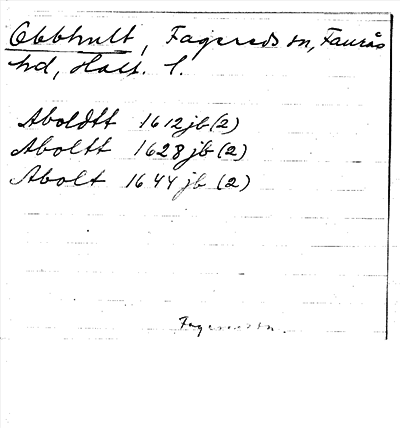 Obbhult, Fagereds sn, Faurås
hd, Hall. l.
Aboldtt 1612 jb (2)
Aboltt 1628 jb (2)
Abolt 1644 jb (2)